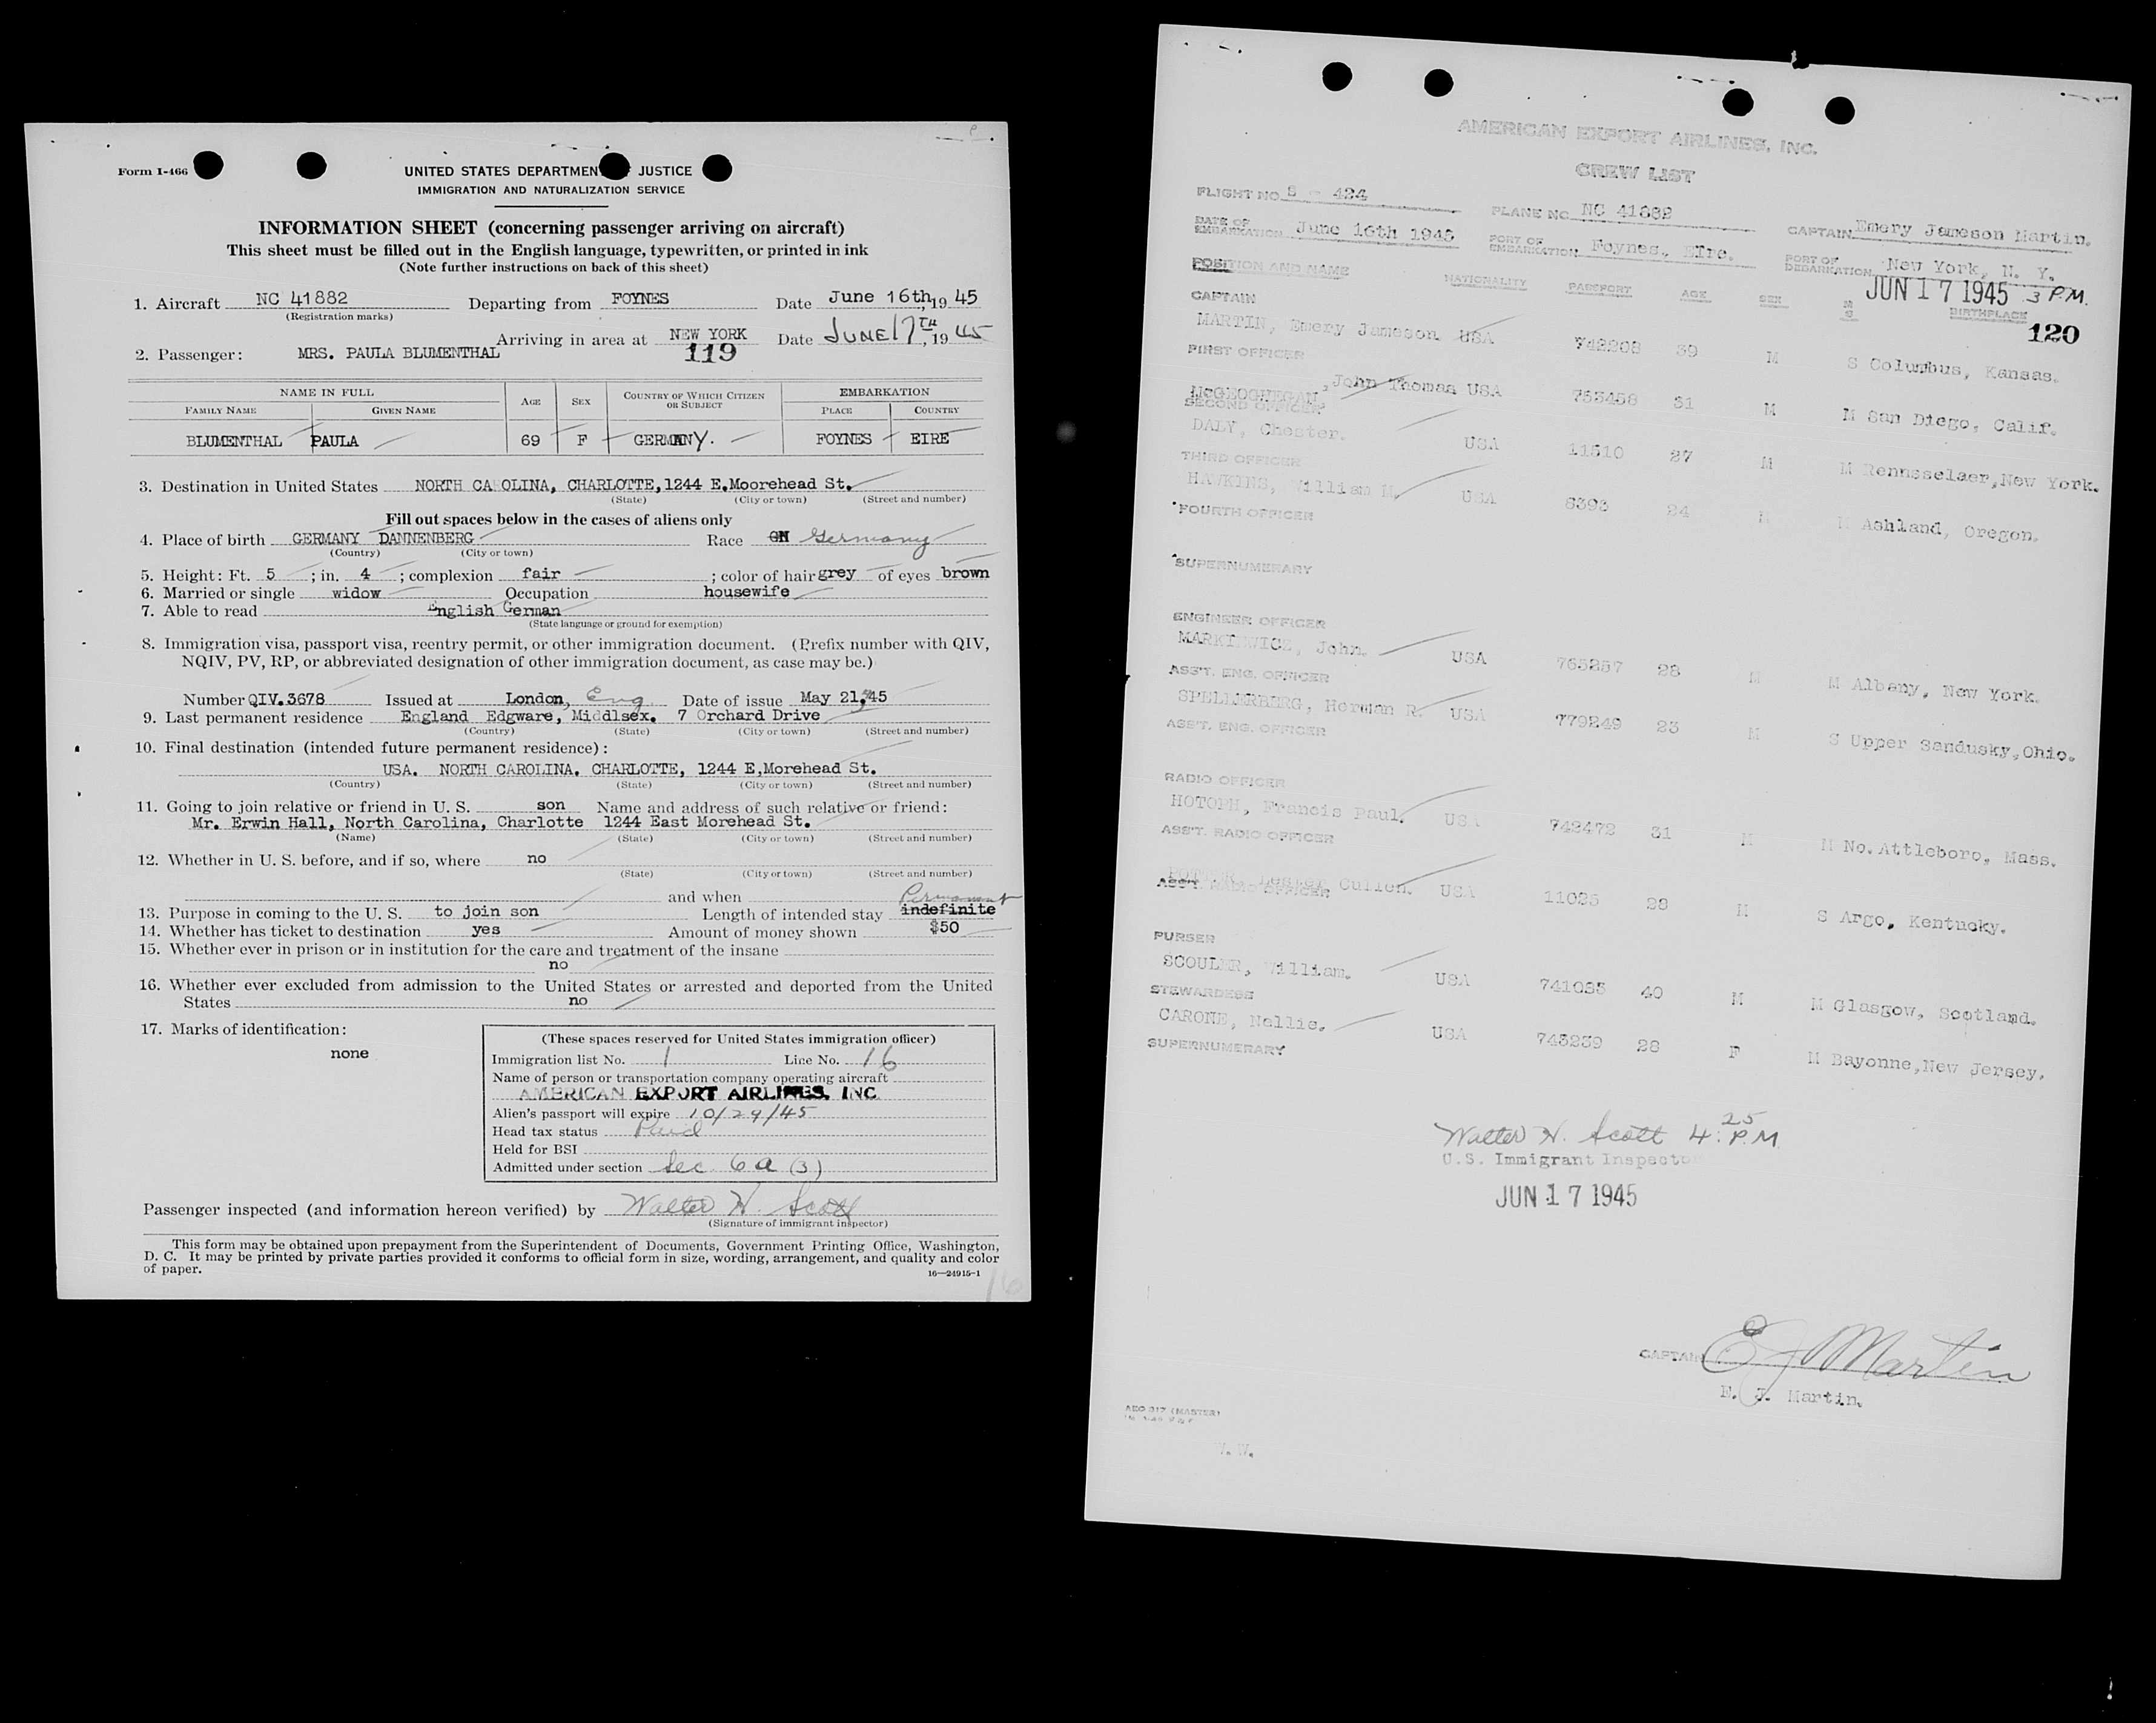 Form I-466
UNITED STATES DEPARTMENT JUSTICE
IMMIGRATION AND NATURALIZATION SERVICE
INFORMATION SHEET (concerning passenger arriving on aircraft)
This sheet must be filled out in the English language, typewritten, or printed in ink
(Note further instructions on back of this sheet)
1. Aircraft NC 41882 Departing from FOYNES Date June 16th, 19 45
(Registration marks)
Arriving in area at NEW YORK Date JUNE 17TH, 19 45
2. Passenger: MRS. PAULA BLUMENTHAL 119
NAME IN FULL AGE SEX COUNTRY OF WHICH CITIZEN OR SUBJECT EMBARKATION
FAMILY NAME GIVEN NAME PLACE COUNTRY
BLUMENTHAL PAULA 69 F GERMANY. FOYNES EIRE
3. Destination in United States NORTH CA OLINA, CHARLOTTE, 1244 E.Moorehead St.
(State) (City or town) (Street and number)
Fill out spaces below in the cases of aliens only
4. Place of birth GERMANY DANNENBERG Race Germany
(Country) (City or town)
5. Height: Ft. 5 ; in. 4 ; complexion fair ; color of hair grey of eyes brown
6. Married or single widow Occupation housewife
7. Able to read English German
(State language or ground for exemption)
8. Immigration visa, passport visa, reentry permit, or other immigration document. (Prefix number with QIV,
NQIV, PV, RP, or abbreviated designation of other immigration document, as case may be.)
Number QIV.3678 Issued at London, Eng Date of issue May 21, 45
9. Last permanent residence England Edgware, Middlsex. 7 Orchard Drive
(Country) (State) (City or town) (Street and number)
10. Final destination (intended future permanent residence):
USA. NORTH CAROLINA. CHARLOTTE, 1244 E,Morehead St.
(Country) (State) (City or town) (Street and number)
11. Going to join relative or friend in U. S. son Name and address of such relative or friend:
Mr. Erwin Hall, North Carolina, Charlotte 1244 East Morehead St.
(Name) (State) (City or town) (Street and number)
12. Whether in U. S. before, and if so, where no
(State) (City or town) (Street and number)
and when Permanent
13. Purpose in coming to the U. S. to join son Length of intended stay indefinite
14. Whether has ticket to destination yes Amount of money shown $50
15. Whether ever in prison or in institution for the care and treatment of the insane
no
16. Whether ever excluded from admission to the United States or arrested and deported from the United
States no
17. Marks of identification:
none
(These spaces reserved for United States immigration officer)
Immigration list No. 1 Line No. 16
Name of person or transportation company operating aircraft
AMERICAN EXPORT AIRLINES, INC
Alien's passport will expire 10/29/45
Head tax status Paid
Held for BSI
Admitted under section Sec 6 a (3)
Passenger inspected (and information hereon verified) by Walter W. Scott
(Signature of immigrant inspector)
This form may be obtained upon prepayment from the Superintendent of Documents, Government Printing Office, Washington,
D. C. It may be printed by private parties provided it conforms to official form in size, wording, arrangement, and quality and color
of paper.
16—24915-1
16
AMERICAN EXPORT AIRLINES, INC.
CREW LIST
FLIGHT NO. 424 PLANE NO. NC 41882 CAPTAIN Emery Jameson Martin.
DATE OF EMBARKATION June 16th 1945 PORT OF EMBARKATION Foynes, EIre. PORT OF DEBARKATION New York, N. Y.
JUN 17 1945 3 P.M.
POSITION AND NAME NATIONALITY PASSPORT AGE SEX BIRTHPLACE
120
CAPTAIN
MARTIN, Emery Jameson USA 742208 39 M S Columbus, Kansas.
FIRST OFFICER
McGEOGHEGAN, John Thomas USA 753458 31 M M San Diego, Calif.
SECOND OFFICER
DALY, Chester. USA 11510 27 M M Rennsselaer,New York.
THIRD OFFICER
HAWKINS, William M. USA 6393 24 M M Ashland, Oregon.
FOURTH OFFICER
SUPERNUMERARY
ENGINEER OFFICER
MARKIEWICZ, John. USA 765257 28 M M Albany, New York.
ASS'T. ENG. OFFICER
SPELLERBERG, Herman R. USA 779249 23 M S Upper Sandusky,Ohio.
ASS'T. ENG. OFFICER
RADIO OFFICER
HOTOPH, Francis Paul. USA 742472 31 M M No.Attleboro, Mass.
ASS'T. RADIO OFFICER
Lester Cullen. USA 11025 28 M S Argo, Kentucky.
ASS'T. RADIO OFFICER
PURSER
SCOULER, William. USA 741085 40 M M Glasgow, Scotland.
STEWARDESS
CARONE, Nellie. USA 745239 28 F M Bayonne,New Jersey.
SUPERNUMERARY
Walter W. Scott 4:25 P.M
U.S. Immigrant Inspector
JUN 17 1945
CAPTAIN E J Martin
E. J. Martin.
AEO 317 (MASTER)